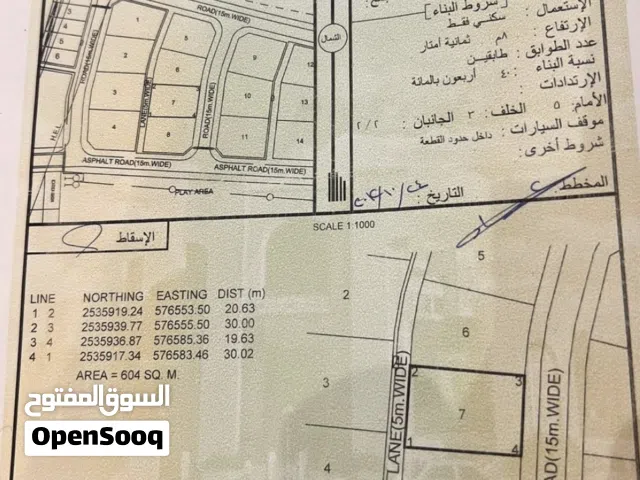 الإستعمال : [ شروط البناء ]
سكني فقط
الإرتفاع : ٨م ثمانية أمتار
عدد الطوابق : طابقين
نسبة البناء : ٤٠ أربعون بالمائة
الإرتدادات :
الأمام: ٥ الخلف: ٣ الجانبان : ٢/٢
موقف السيارات : داخل حدود القطعة
شروط أخرى:
المخطط:
التاريخ:
الشمال
ROAD(15m.WIDE)
ROAD(15m.WIDE)
LANE(5m.WIDE)
ROAD(15m.WIDE)
1
5
2
6
3
7
4
8
9
10
11
12
13
14
ASPHALT ROAD(15m.WIDE)
ASPHALT ROAD(15m.WIDE)
PLAY AREA
SCALE 1:1000
الإسقاط
LINE NORTHING EASTING DIST (m)
1 2 2535919.24 576553.50 20.63
2 3 2535939.77 576555.50 30.00
3 4 2535936.87 576585.36 19.63
4 1 2535917.34 576583.46 30.02
AREA = 604 SQ. M.
2
3
4
5
6
7
1
2
3
4
LANE(5m.WIDE)
AD(15m.WIDE)
السوق المفتوح
OpenSooq